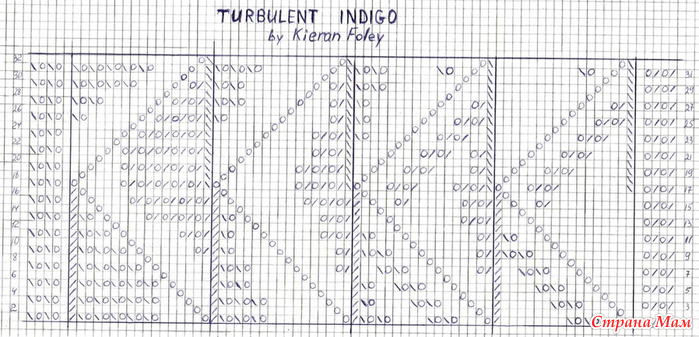 TURBULENT INDIGO
by Kieran Foley
32
31
30
29
28
27
26
25
24
23
22
21
20
19
18
17
16
15
14
13
12
11
10
9
8
7
6
5
4
3
2
Страна Мам